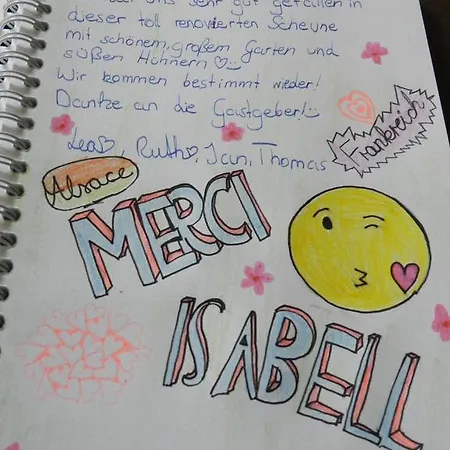 uns sehr gut gefallen in
dieser toll renovierten Scheune
mit schönem, großem Garten und
süßen Hühnern
Wir kommen bestimmt wieder!
Dantze an die Gastgeber!
Lea, Ruth, Jan, Thomas
Frankreich
Alsace
MERCI
ISABELL